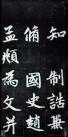 知制誥兼
脩國史趙
孟頫為文并